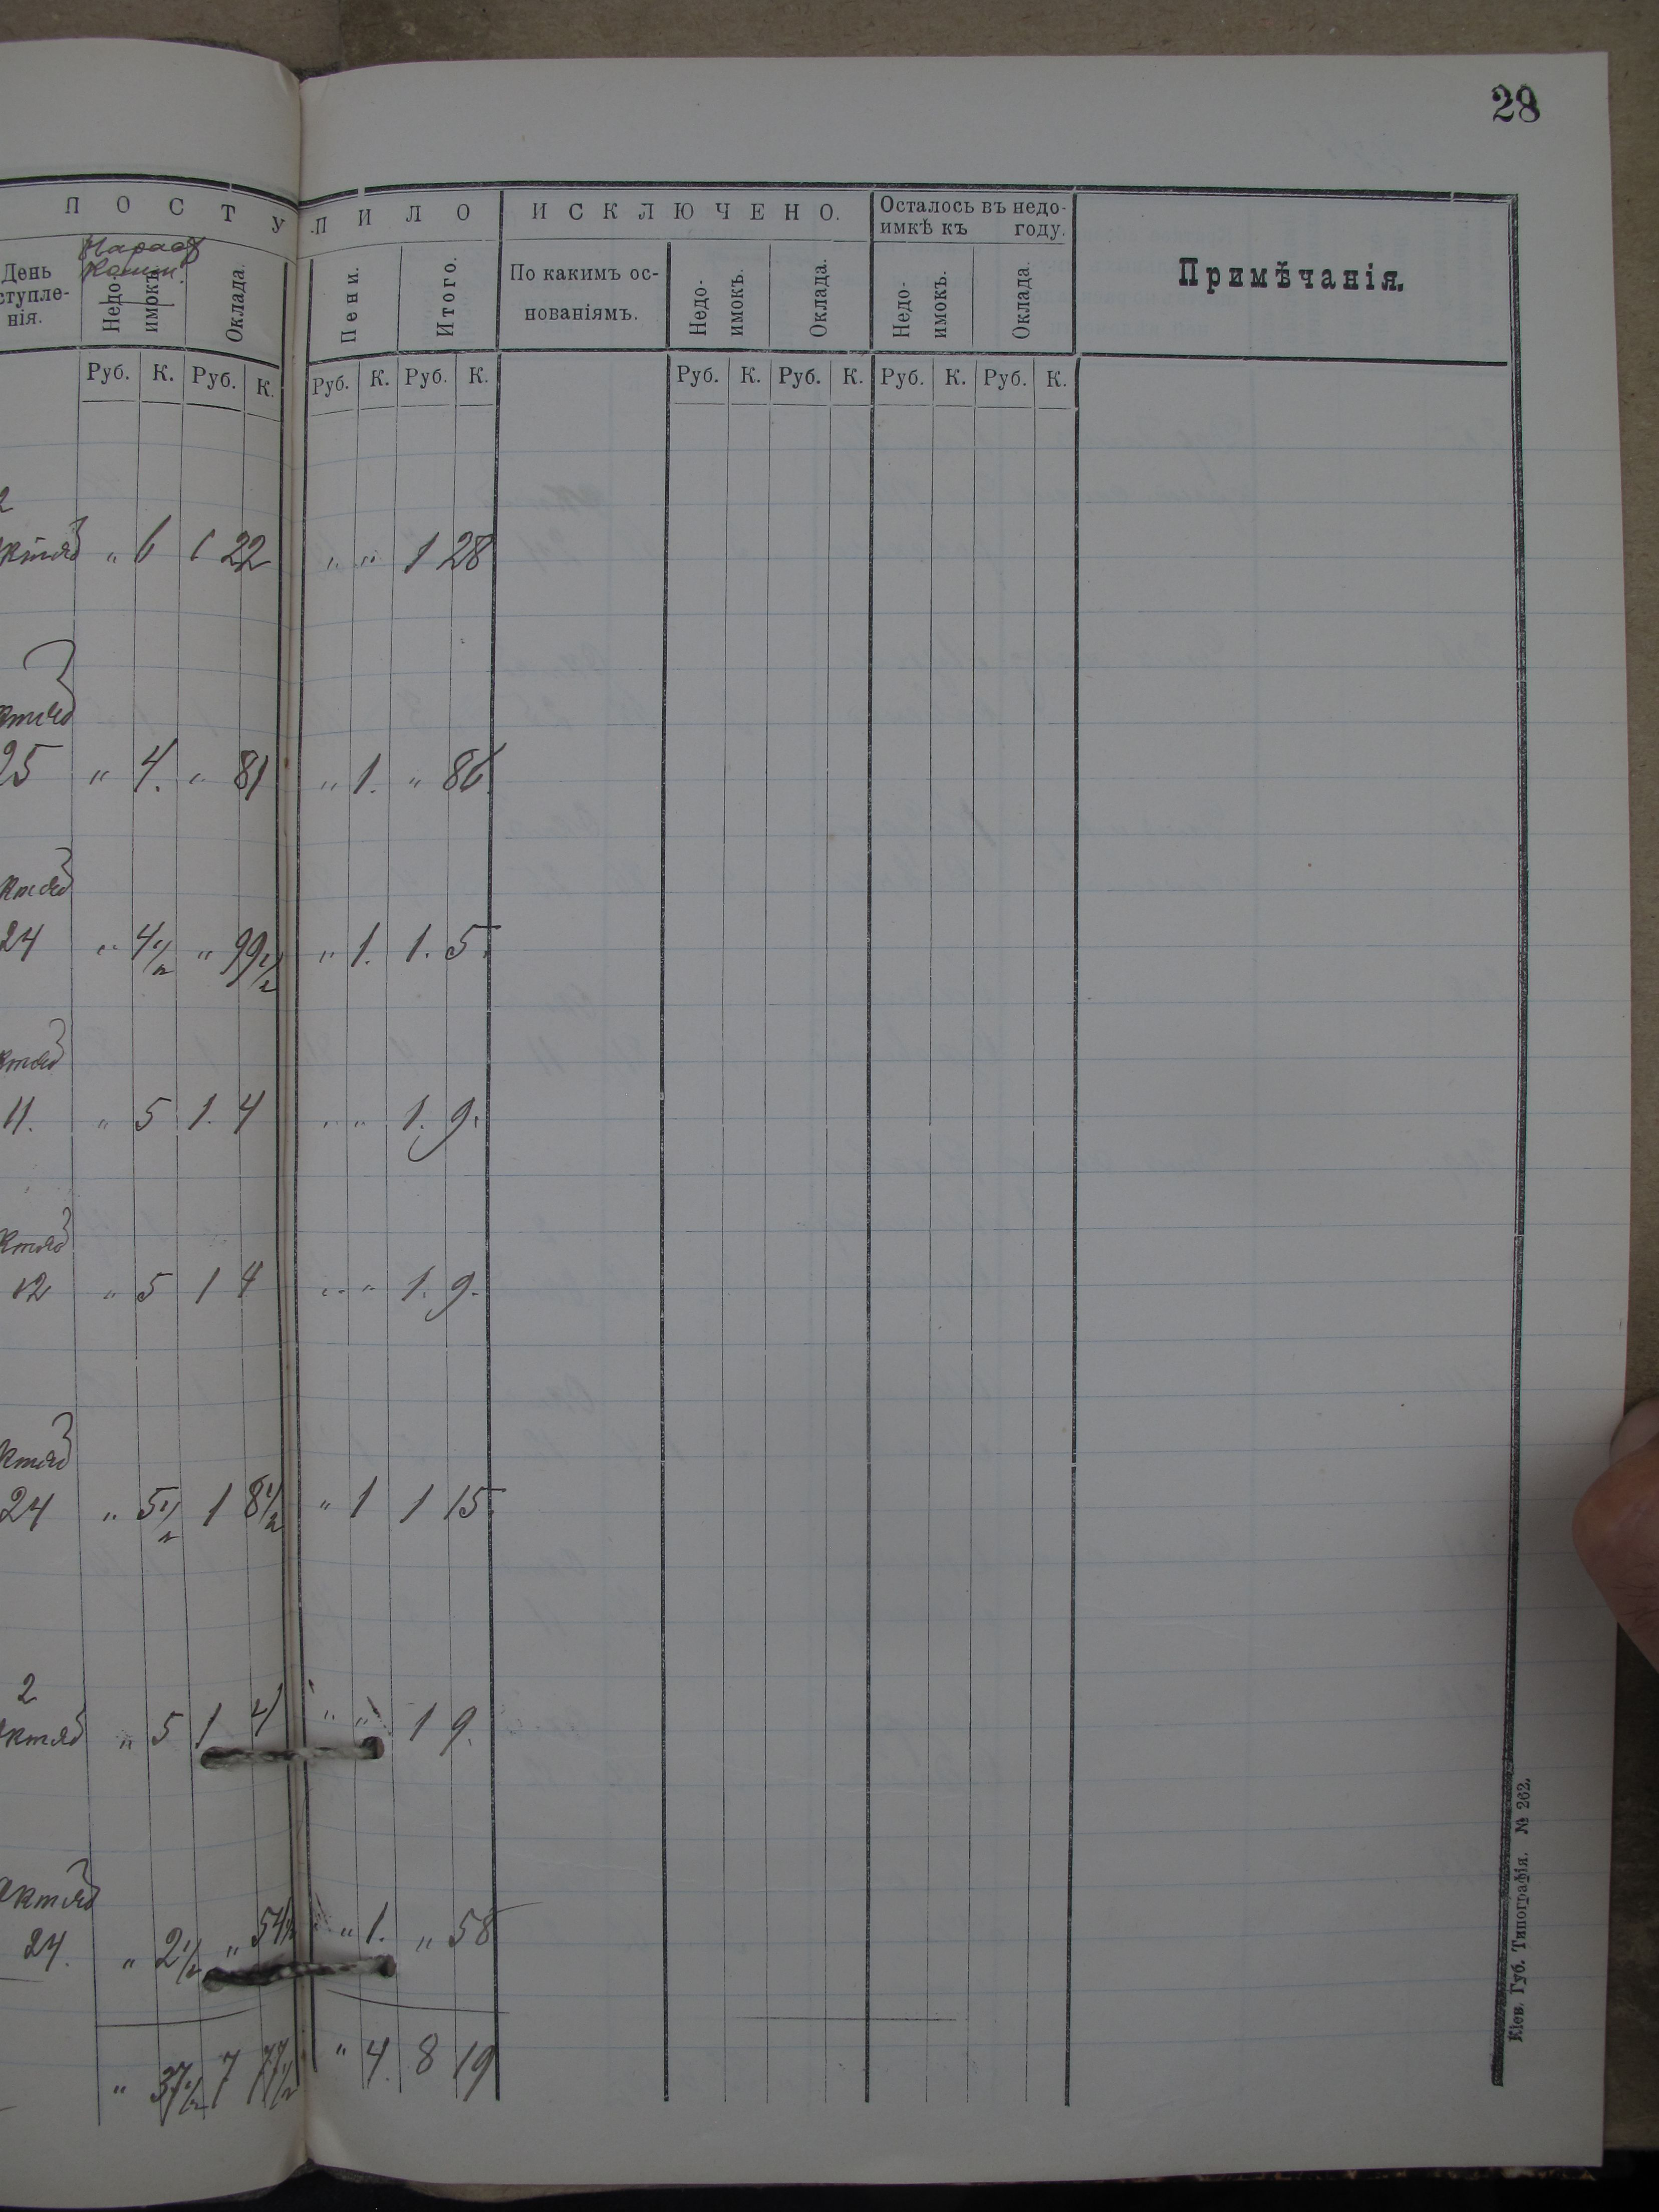 28
П О С Т У П И Л О
И С К Л Ю Ч Е Н О.
Осталось въ недо-
имкѣ къ году.
Примѣчанія.
День
ступле-
нія.
Недо-
имокъ
Оклада.
Пени.
Итого.
По какимъ ос-
нованіямъ.
Недо-
имокъ.
Оклада.
Недо-
имокъ.
Оклада.
Руб. К. Руб. К. Руб. К. Руб. К. Руб. К. Руб. К. Руб. К. Руб. К.
2
ктяб " 6 1 22 " " 1 28
ктяб
25 " 4. " 81 " 1. " 86.
ктяб
24 " 4 1/2 " 99 1/2 " 1. 1. 5.
ктяб
11. " 5 1. 4 " " 1. 9.
ктяб
12 " 5 1 4 " " 1. 9.
ктяб
24 " 5 1/2 1 8 1/2 " 1 1 15.
2
ктяб " 5 1 4 " " 1 9.
ктяб
24. " 2 1/2 " 54 1/2 " 1. " 58
" 37 1/2 7 77 1/2 " 4. 8 19
Кіев. Губ. Типографія. № 262.